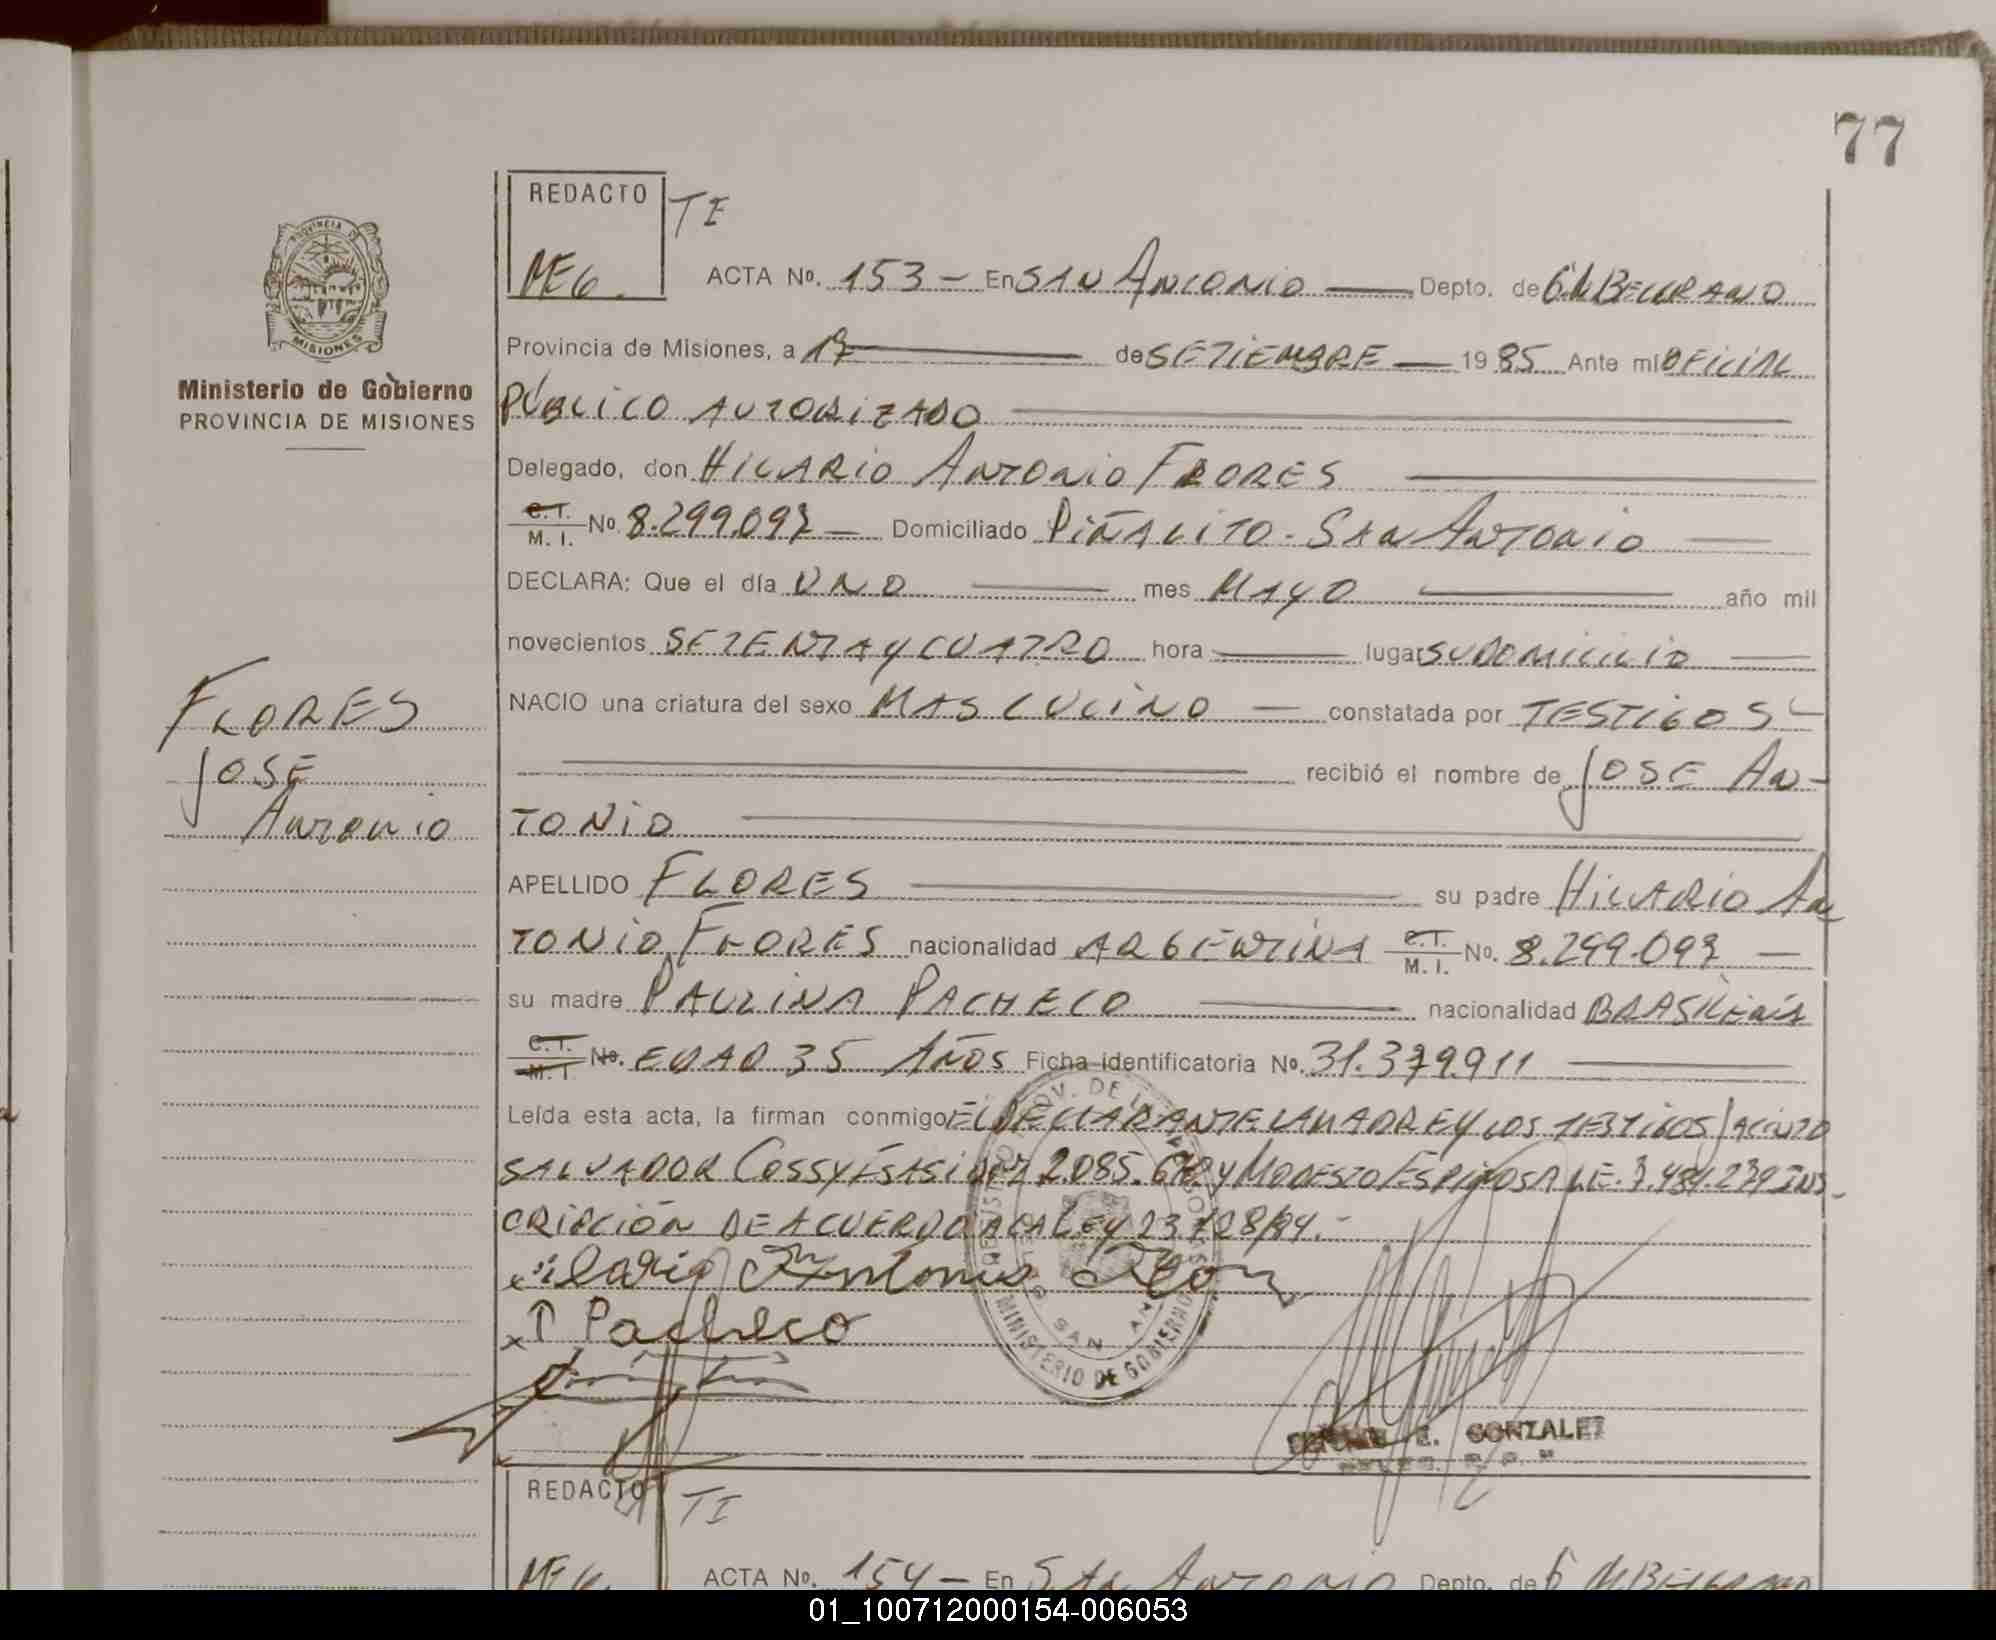 77
REDACTO
TE
MEG.
ACTA Nº. 153 — En SAN ANTONIO — Depto. de G.M BELGRANO
PROVINCIA DE
MISIONES
Ministerio de Gobierno
PROVINCIA DE MISIONES
Provincia de Misiones, a 17 — de SETIEMBRE — 1985 Ante mí OFICIAL
PÚBLICO AUTORIZADO
Delegado, don HILARIO ANTONIO FLORES
C.I. M. I. No. 8.299.097 — Domiciliado PIÑALITO - SAN ANTONIO —
DECLARA: Que el día UNO — mes MAYO — año mil
novecientos SETENTA Y CUATRO hora — lugar SU DOMICILIO —
NACIO una criatura del sexo MASCULINO — constatada por TESTIGOS -
recibió el nombre de JOSE AN-
TONIO
FLORES
JOSE
ANTONIO
APELLIDO FLORES — su padre HILARIO AN
TONIO FLORES nacionalidad ARGENTINA C.I. M. I. No. 8.299.097 —
su madre PAULINA PACHECO — nacionalidad BRASILEÑA
C.I. M. I. No. EDAD 35 AÑOS Ficha identificatoria No. 31.379.911 —
Leída esta acta, la firman conmigo EL DECLARANTE LA MADRE Y LOS TESTIGOS JACINTO
SALVADOR 2.085. Y MODESTO ESPINOSA L.E. 7.481.239 INS-
CRIPCIÓN DE ACUERDO A LA LEY 23.128/84.-
x ilario Antonio
x P Pacheco
MINISTERIO DE GOBIERNO
E. GONZALEZ
REDACTO
TI
MEG.
ACTA No. 154 — En SAN ANTONIO Depto. de G. M BELGRANO
01_100712000154-006053